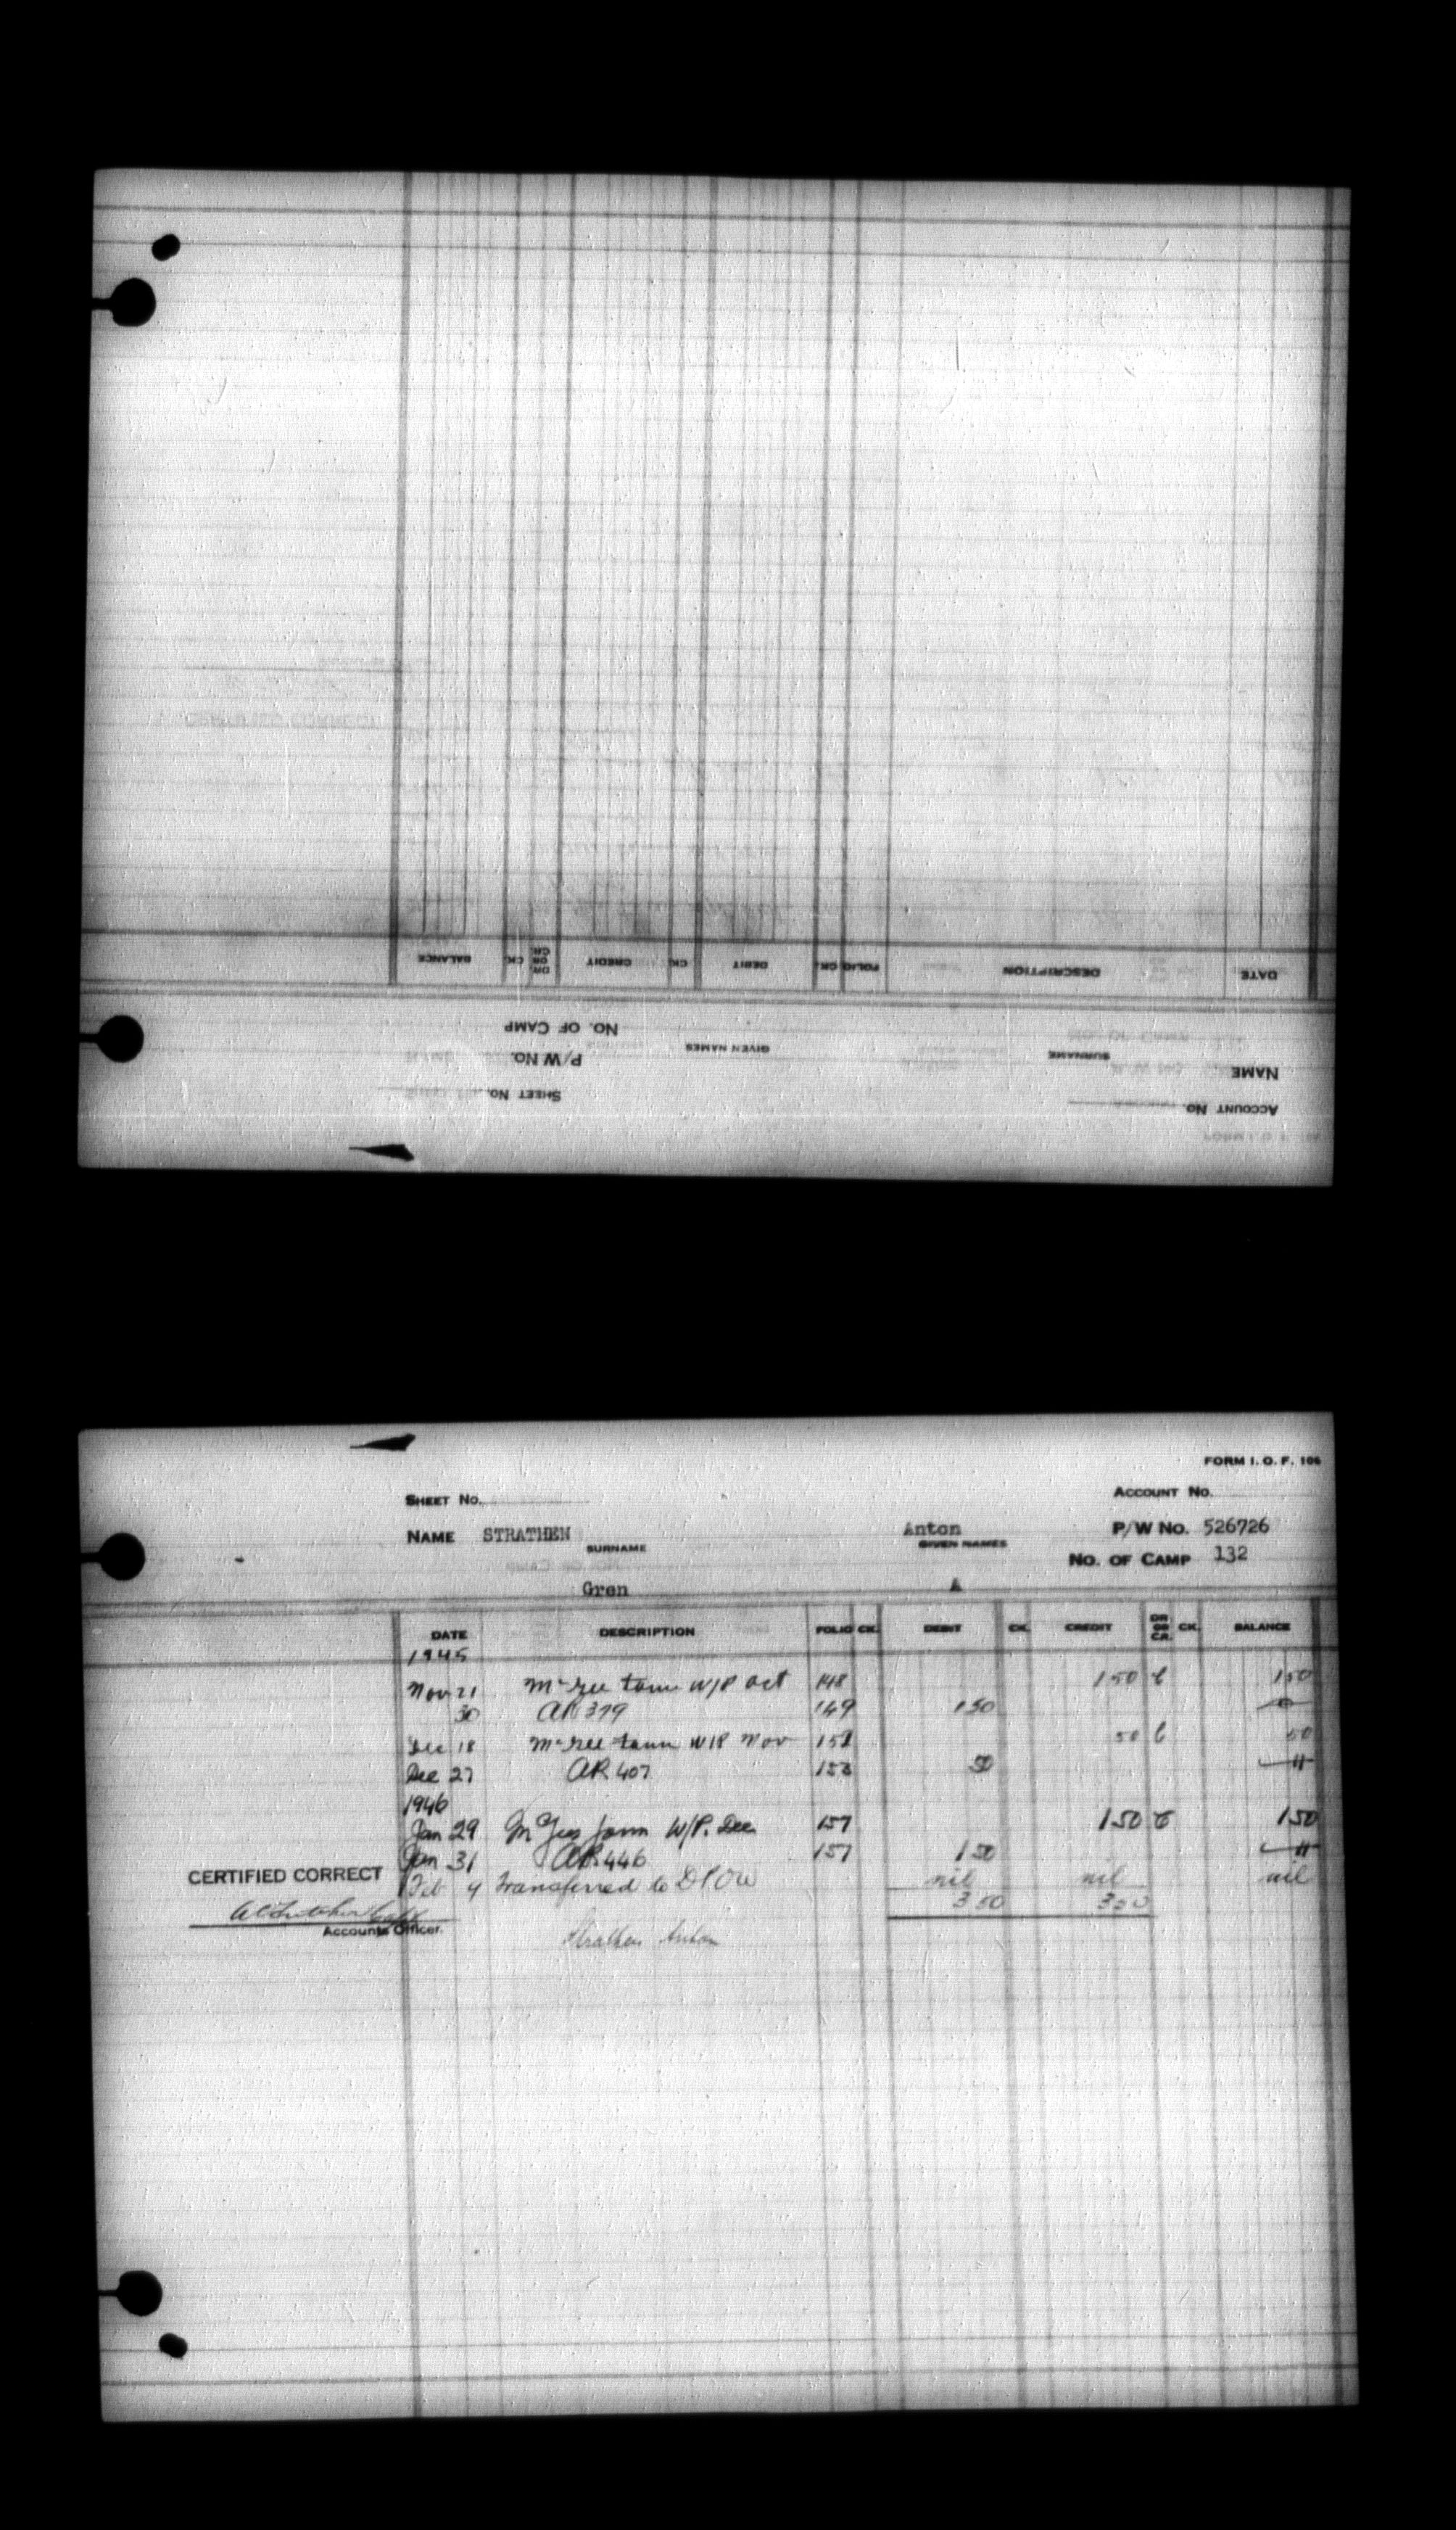 DATE DESCRIPTION FOLIO CK. DEBIT CK. CREDIT DR. OR CR. CK. BALANCE
NO. OF CAMP
NAME SURNAME GIVEN NAMES P/W No.
ACCOUNT No. SHEET No.
FORM I. O. F. 106
SHEET No. ACCOUNT No.
NAME STRATHEN Anton P/W No. 526726
SURNAME GIVEN NAMES
NO. OF CAMP 132
Gren A
DATE DESCRIPTION FOLIO CK. DEBIT CK. CREDIT DR OR CR. CK. BALANCE
1945
Nov 21 W/P Oct 148 1 50 C 1 50
30 AR 379 149 1 50
Dec 18 W/P Nov 152 50 C 50
Dec 27 AR 407 153 50
1946
Jan 29 W/P. Dec 157 1 50 C 1 50
Jan 31 AR 446 157 1 50
Feb 4 Transferred to DPOW nil nil nil
3 50 3 50
CERTIFIED CORRECT
Accounts Officer.
Strathen Anton